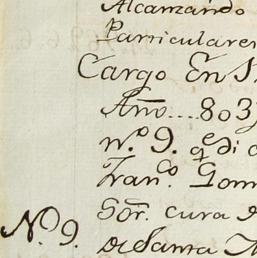 Alcanzando
Particulares
Cargo En
Año....803
n.º 9. q.e di
Fran.co Gom
N.º 9. Sor. cura
de Santa